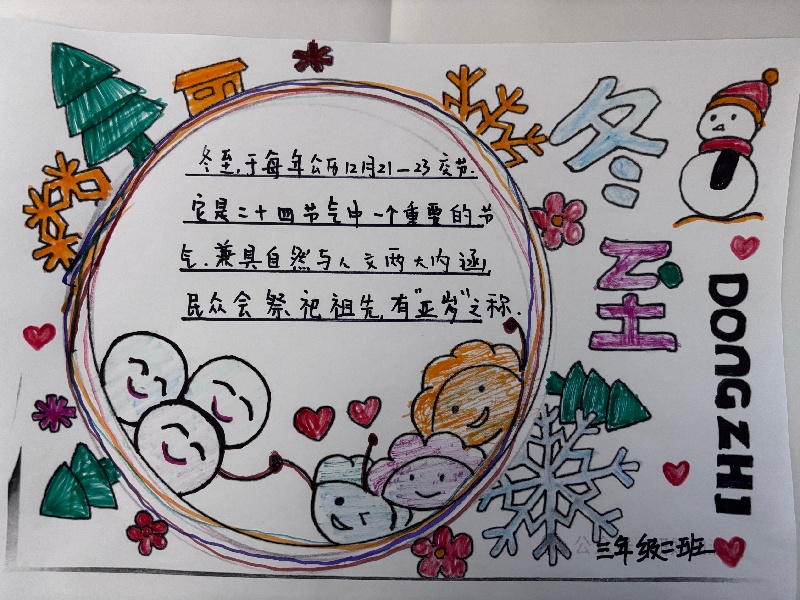 冬至
DONGZHI
冬至,于每年公历12月21—23交节.
它是二十四节气中一个重要的节
气.兼具自然与人文两大内涵,
民众会祭祀祖先,有"亚岁"之称.
三年级二班